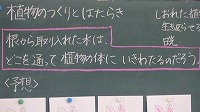 植物のつくりとはたらき
根から取り入れた水は、
どこを通って植物の体に いきわたるのだろう。
<予想>
しおれた植
生き返らせる